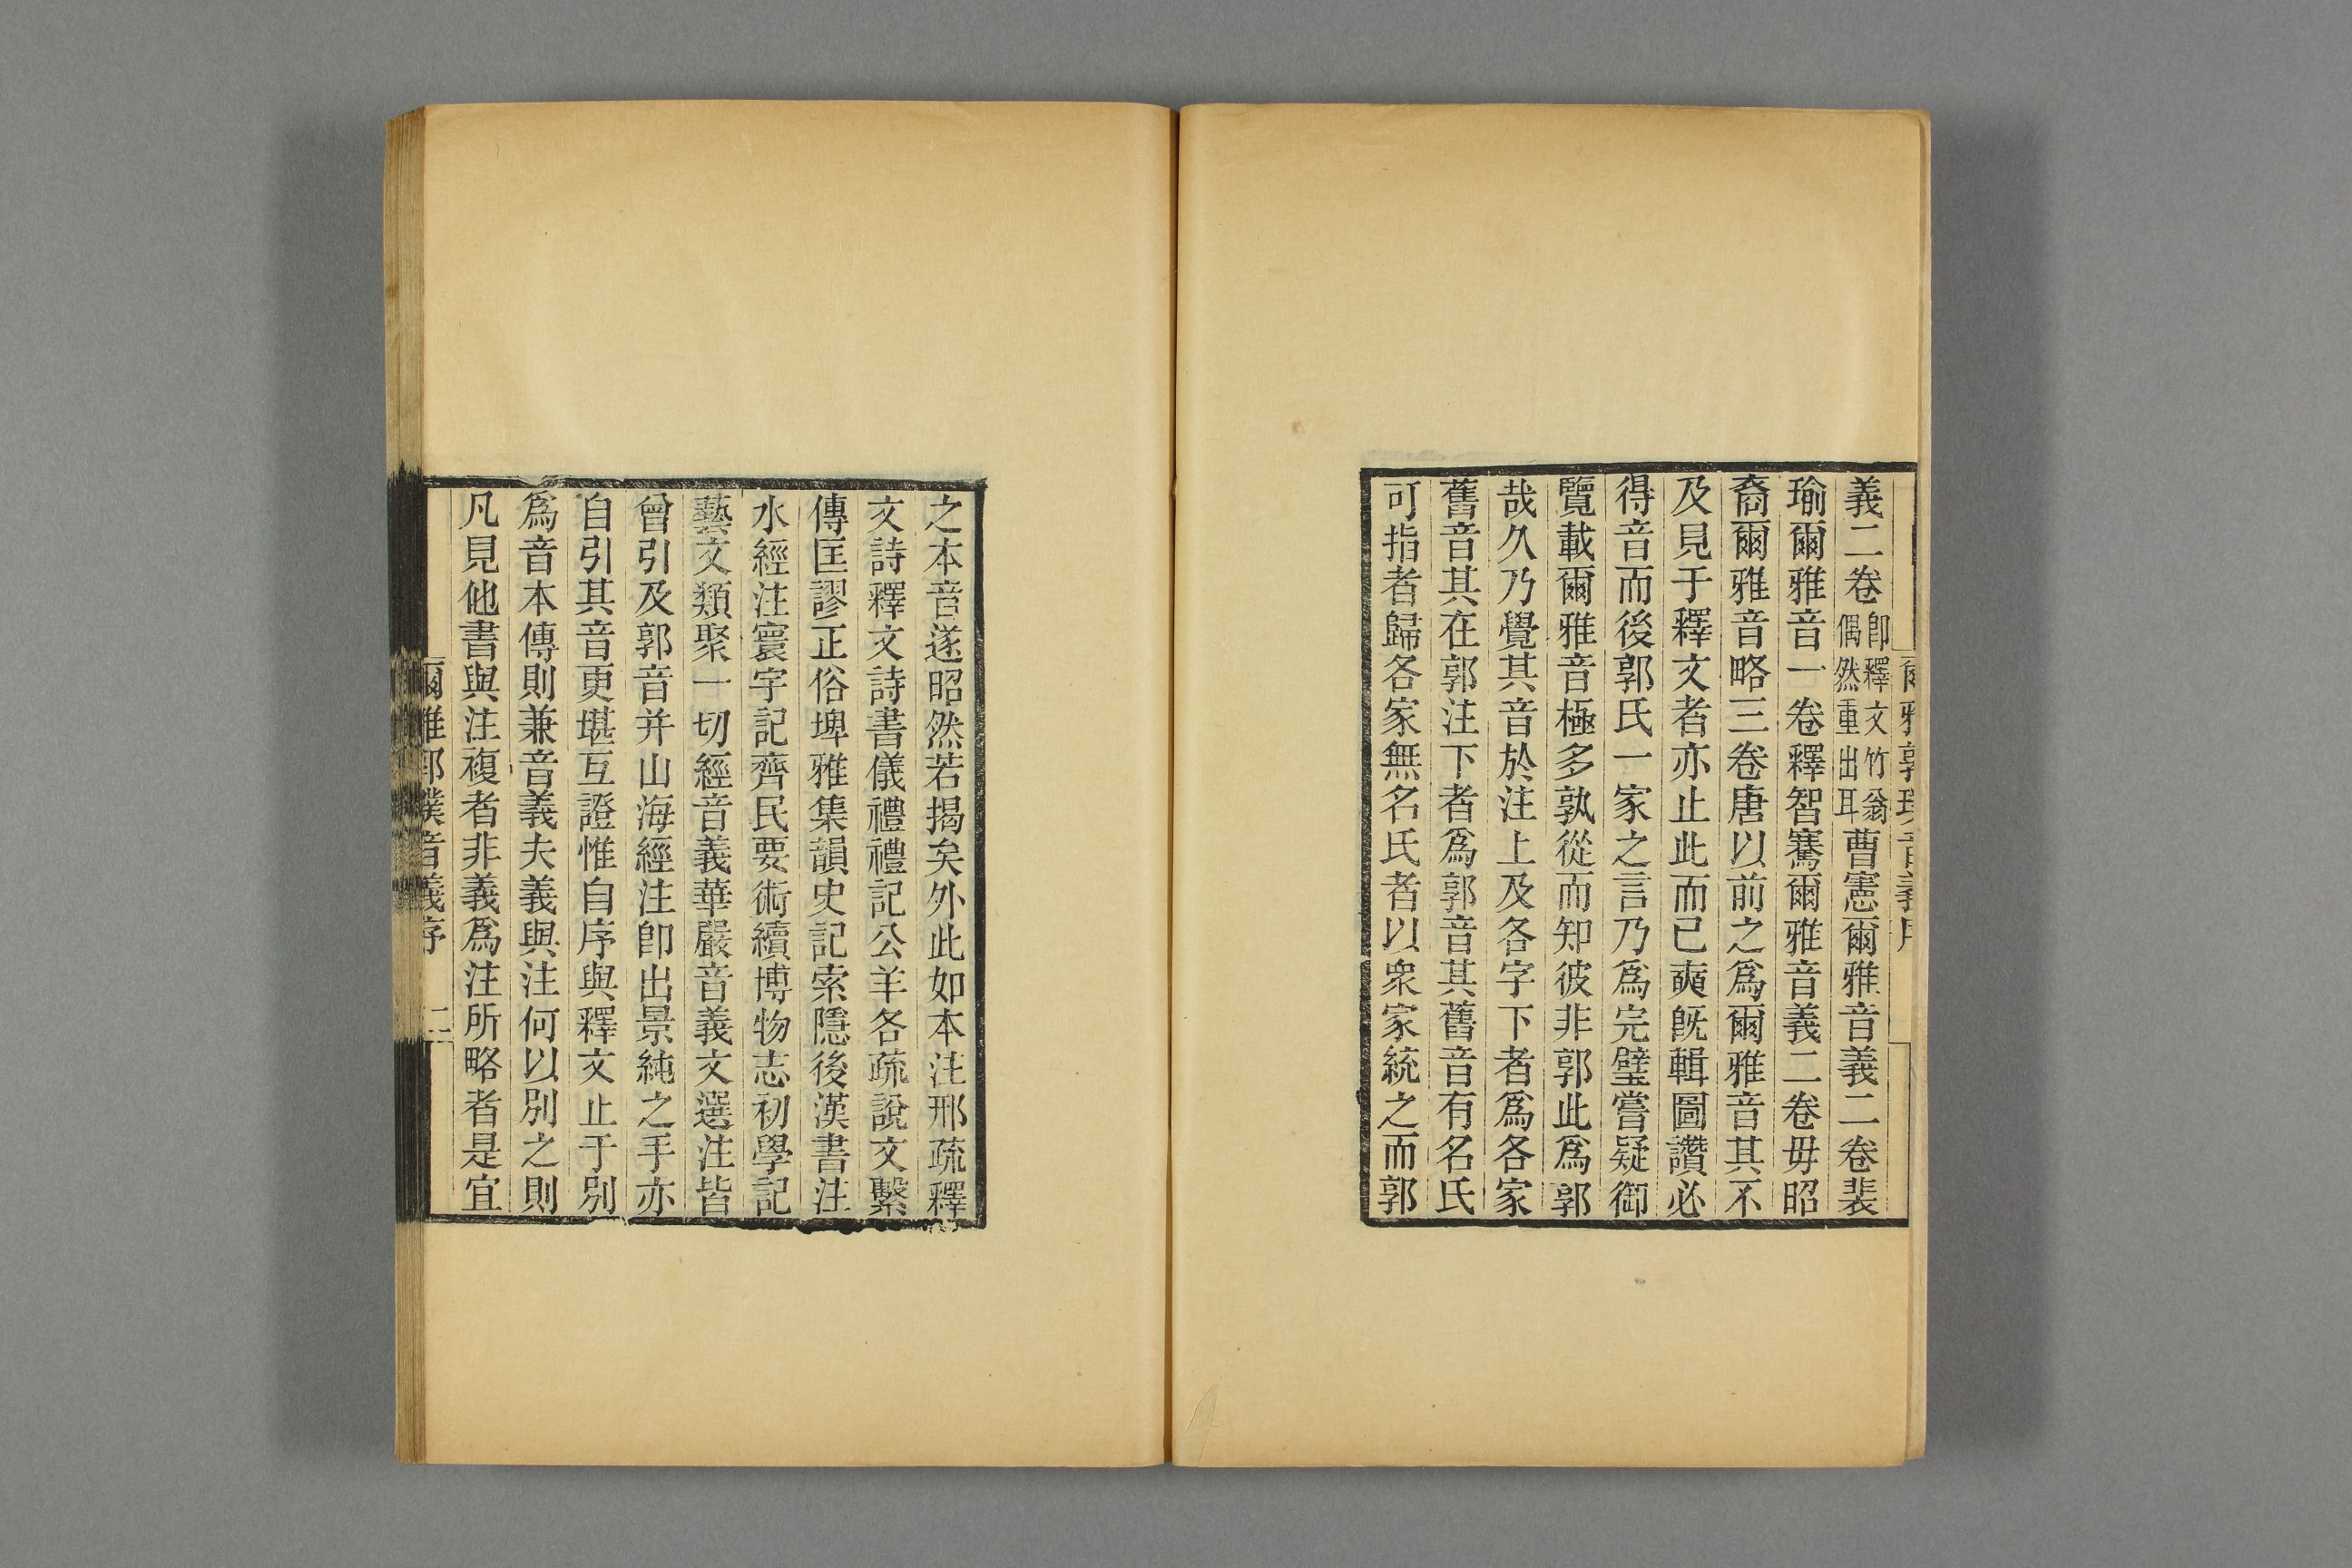 義二卷卽釋文竹翁偶然重出耳曹憲爾雅音義二卷裴
瑜爾雅音一卷釋智騫爾雅音義二卷毋昭
裔爾雅音略三卷唐以前之爲爾雅音其不
及見于釋文者亦止此而已奭旣輯圖讚必
得音而後郭氏一家之言乃爲完璧嘗疑御
覽載爾雅音極多孰從而知彼非郭此爲郭
哉久乃覺其音於注上及各字下者爲各家
舊音其在郭注下者爲郭音其舊音有名氏
可指者歸各家無名氏者以衆家統之而郭
之本音遂昭然若揭矣外此如本注邢疏釋
文詩釋文詩書儀禮禮記公羊各疏說文繫
傳匡謬正俗埤雅集韻史記索隱後漢書注
水經注寰宇記齊民要術續博物志初學記
藝文類聚一切經音義華嚴音義文選注皆
曾引及郭音并山海經注卽出景純之手亦
自引其音更堪互證惟自序與釋文止于別
爲音本傳則兼音義夫義與注何以別之則
凡見他書與注複者非義爲注所略者是宜
爾雅郭璞音義序 二